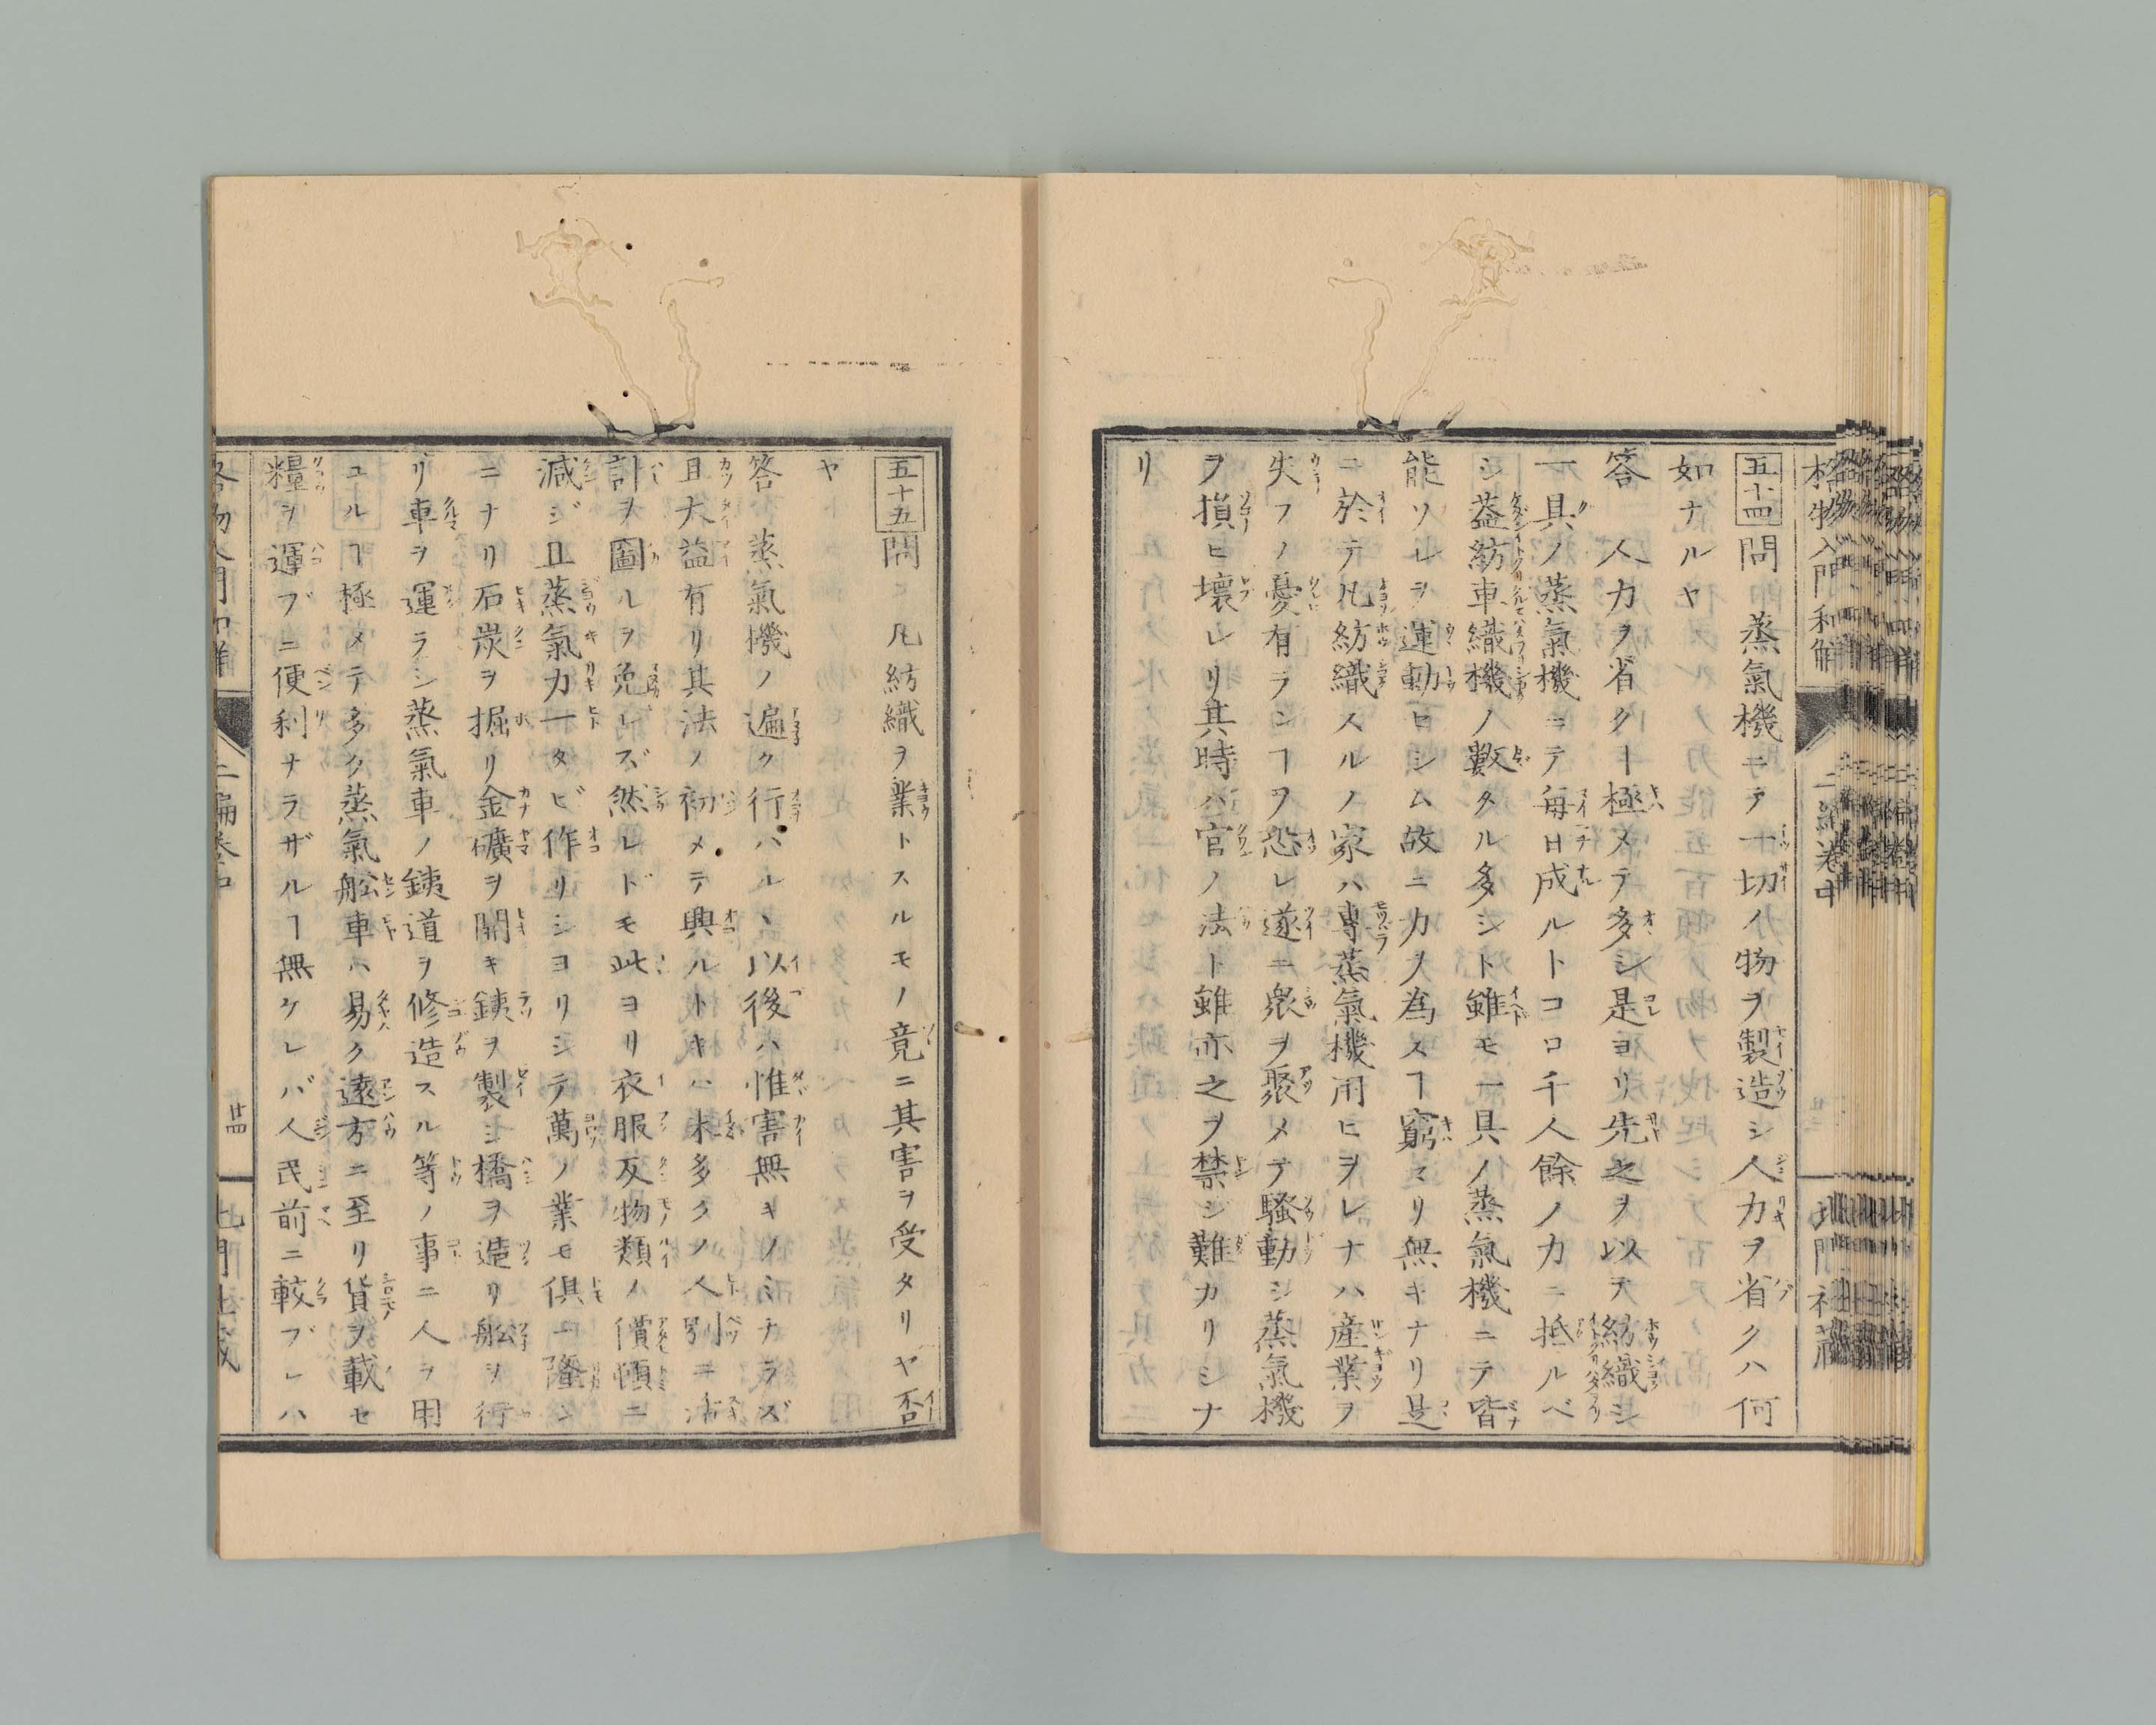 格物入門和解
二編巻中
北門社藏
五十四問 蒸氣機ニテ一切ノ物ヲ製造シ人力ヲ省クハ何
如ナルヤ
答 人力ヲ省クヿ極メテ多シ是ヨリ先之ヲ以テ紡織シ
一具ノ蒸氣機ニテ毎日成ルトコロ千人餘ノ力ニ抵ルベ
シ葢紡車織機ノ數タル多シト雖モ一具ノ蒸氣機ニテ皆
能ソレヲ運動セシム故ニ力ヲ為スヿ窮マリ無キナリ是
ニ於テ凡紡織スルノ家ハ專蒸氣機用ヒヲレナハ産業ヲ
失フノ憂有ランヿヲ恐レ遂ニ衆ヲ聚メテ騷動シ蒸氣機
ヲ損ヒ壞レリ其時ハ官ノ法ト雖亦之ヲ禁ジ難カリシナ
リ
五十五問 凡紡織ヲ業トスルモノ竟ニ其害ヲ受タリヤ否
ヤ
答 蒸氣機ノ遍ク行ハルヽ以後ハ惟害無キノミナラズ
且大益有リ其法ノ初メテ興ルトキハ未多クノ人別ニ活
計ヲ圖ルヲ免レズ然レドモ此ヨリ衣服反物類ノ價頓ニ
減ジ且蒸氣力一タビ作リシヨリシテ萬ノ業モ俱ニ隆ン
ニナリ石炭ヲ掘リ金礦ヲ開キ銕ヲ製シ橋ヲ造リ舩ヲ行
リ車ヲ運ラシ蒸氣車ノ銕道ヲ修造スル等ノ事ニ人ヲ用
ユルヿ極メテ多ク蒸氣舩車ハ易ク遠方ニ至リ貨ヲ載セ
糧ヲ運ブニ便利ナラザルヿ無ケレバ人民前ニ較ブレハ
格物入門和解
二編巻中
廿四
北門社藏